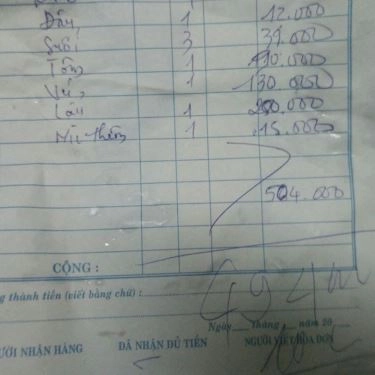 Đầu 1 12.000
Suối 3 39.000
Tôm 1
1 130.000
Lẩu 1 250.000
Mì thêm 1 15.000
504.000
CỘNG :
g thành tiền (viết bằng chữ) :
494
Ngày tháng năm 20
ƯỜI NHẬN HÀNG ĐÃ NHẬN ĐỦ TIỀN NGƯỜI VIẾT HÓA ĐƠN